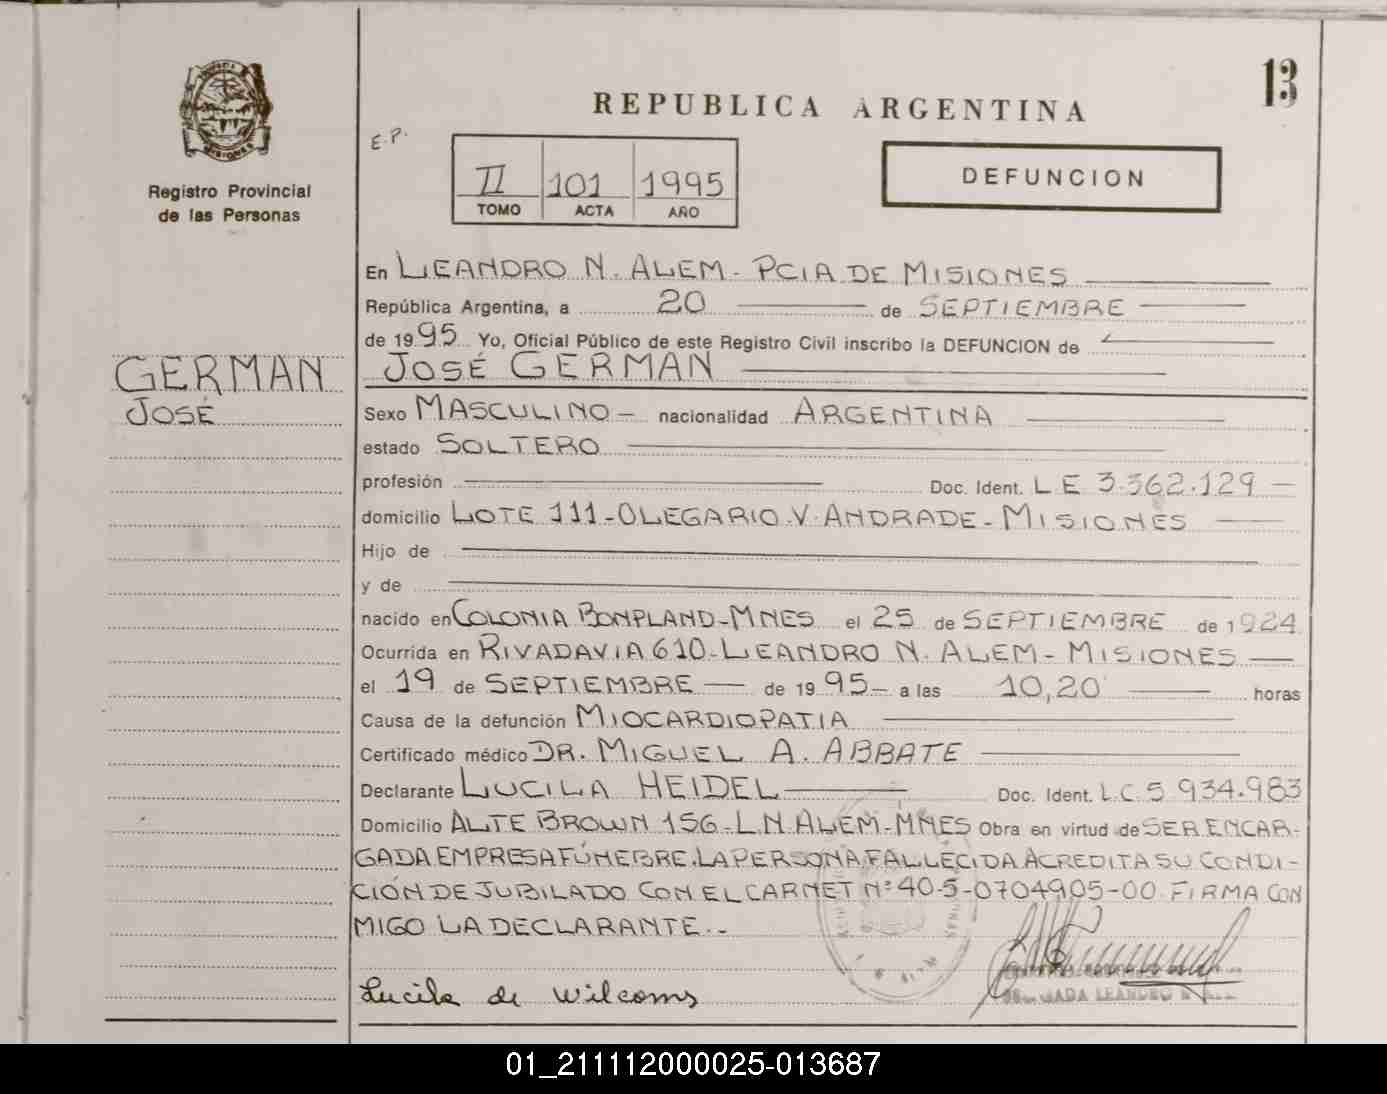 13
REPUBLICA ARGENTINA
E.P.
II 101 1995
TOMO ACTA AÑO
DEFUNCION
MISIONES
Registro Provincial
de las Personas
GERMAN
JOSÉ
En LEANDRO N. ALEM - PCIA DE MISIONES
República Argentina, a 20 de SEPTIEMBRE
de 1995 Yo, Oficial Público de este Registro Civil inscribo la DEFUNCION de
JOSÉ GERMAN
Sexo MASCULINO - nacionalidad ARGENTINA
estado SOLTERO
profesión Doc. Ident. L E 3.562.129 -
domicilio LOTE 111 - OLEGARIO V. ANDRADE - MISIONES
Hijo de
y de
nacido en COLONIA BONPLAND - MNES el 25 de SEPTIEMBRE de 1924
Ocurrida en RIVADAVIA 610 - LEANDRO N. ALEM - MISIONES
el 19 de SEPTIEMBRE de 1995 - a las 10,20 horas
Causa de la defunción MIOCARDIOPATIA
Certificado médico DR. MIGUEL A. ABBATE
Declarante LUCILA HEIDEL Doc. Ident. L.C 5 934.983
Domicilio ALTE BROWN 156 - L.N. ALEM - MNES Obra en virtud de SER ENCAR-
GADA EMPRESA FÚNEBRE. LA PERSONA FALLECIDA ACREDITA SU CONDI-
CIÓN DE JUBILADO CON EL CARNET Nº 40-5-0704905-00. FIRMA CON
MIGO LA DECLARANTE. -
Lucila de Wilcoms
LEANDRO N.
01_211112000025-013687